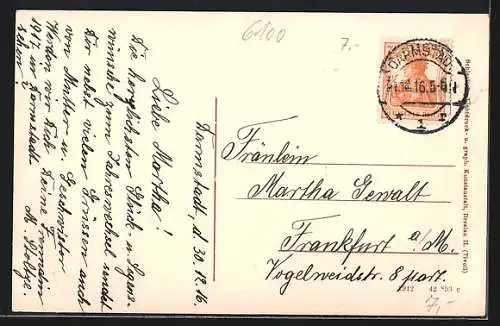 6100
7.-
DARMSTADT
31.12.16.5-6N
* 1 *
Darmstadt, d. 30.12.16.
Liebe Martha!
Die herzlichsten Glück- u. Segens-
wünsche zum Jahreswechsel sendet
Dir nebst vielen Grüssen auch
von Mutter u. Geschwister
Deine Freundin
M. Boltze.
Werden wir Dich
1917 in Darmstadt
sehen?
Fräulein
Martha Gewalt
Frankfurt a/M.
Vogelweidstr. 8 part.
u. graph. Kunstanstalt, Dresden (Tirol)
1912 42 893 c
7,-